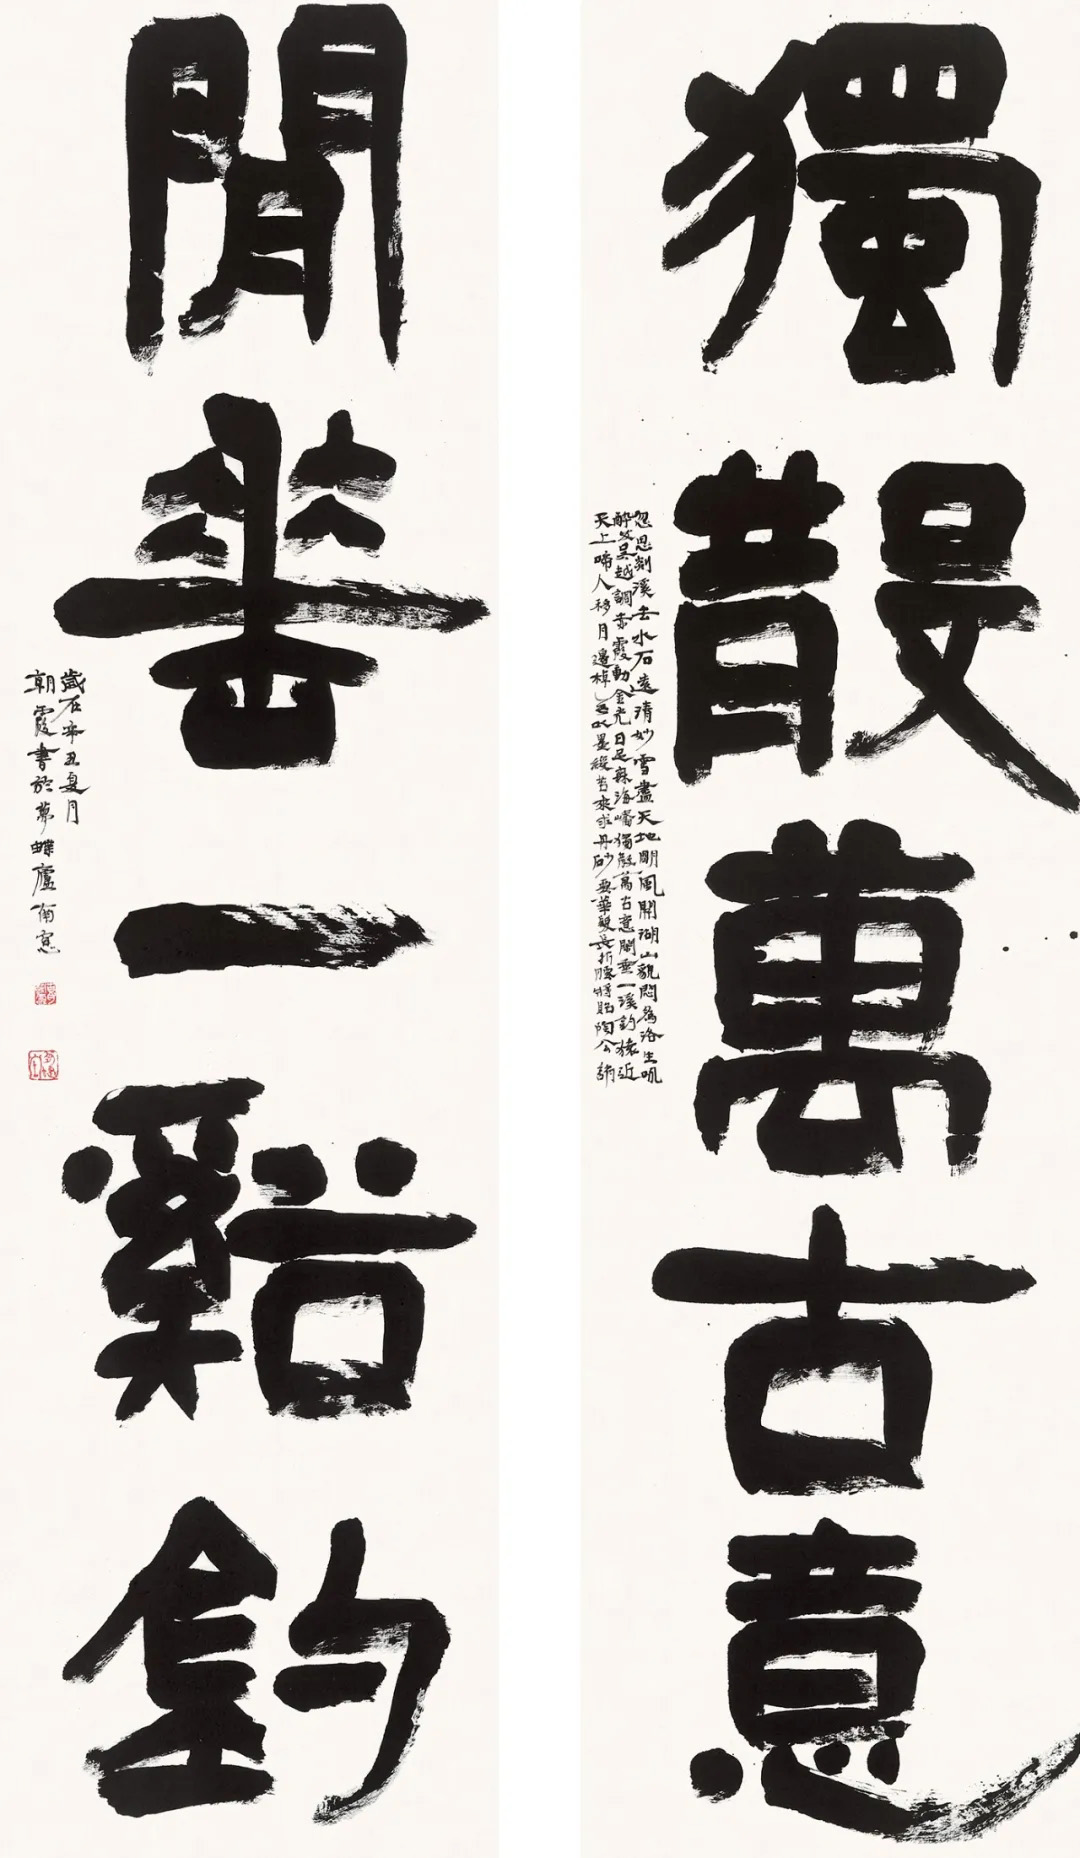 獨散萬古意
忽思剡溪去水石遠清妙雪盡天地明風開湖山貌悶為洛生咏
醉發吳越調赤霞動金光日足森海嶠獨散萬古意閒垂一溪釣猿近
天上啼人移月邊棹无以墨綬苦來求丹砂要華髮長折腰將貽陶公誚
閒垂一谿釣
歲在辛丑夏月
朝霞書於夢蝶廬南窗